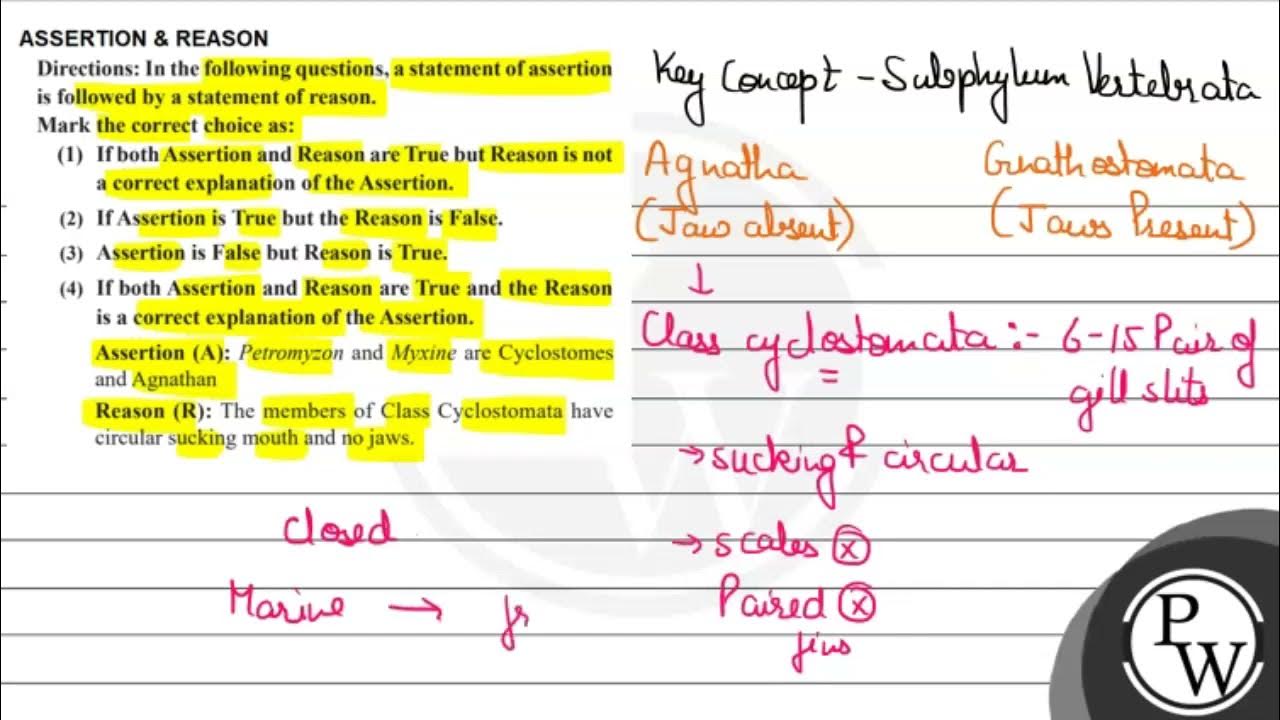 ASSERTION & REASON
Directions: In the following questions, a statement of assertion
is followed by a statement of reason.
Mark the correct choice as:
(1) If both Assertion and Reason are True but Reason is not
a correct explanation of the Assertion.
(2) If Assertion is True but the Reason is False.
(3) Assertion is False but Reason is True.
(4) If both Assertion and Reason are True and the Reason
is a correct explanation of the Assertion.
Assertion (A): Petromyzon and Myxine are Cyclostomes
and Agnathan
Reason (R): The members of Class Cyclostomata have
circular sucking mouth and no jaws.
Closed
Marine → fr
Key Concept - Subphylum Vertebrata
Agnatha Gnathostomata
(Jaw absent) (Jaws Present)
↓
Class cyclostomata :- 6-15 Pair of
gill slits
→ sucking & circular
→ scales ⓧ
Paired ⓧ
fins
PW